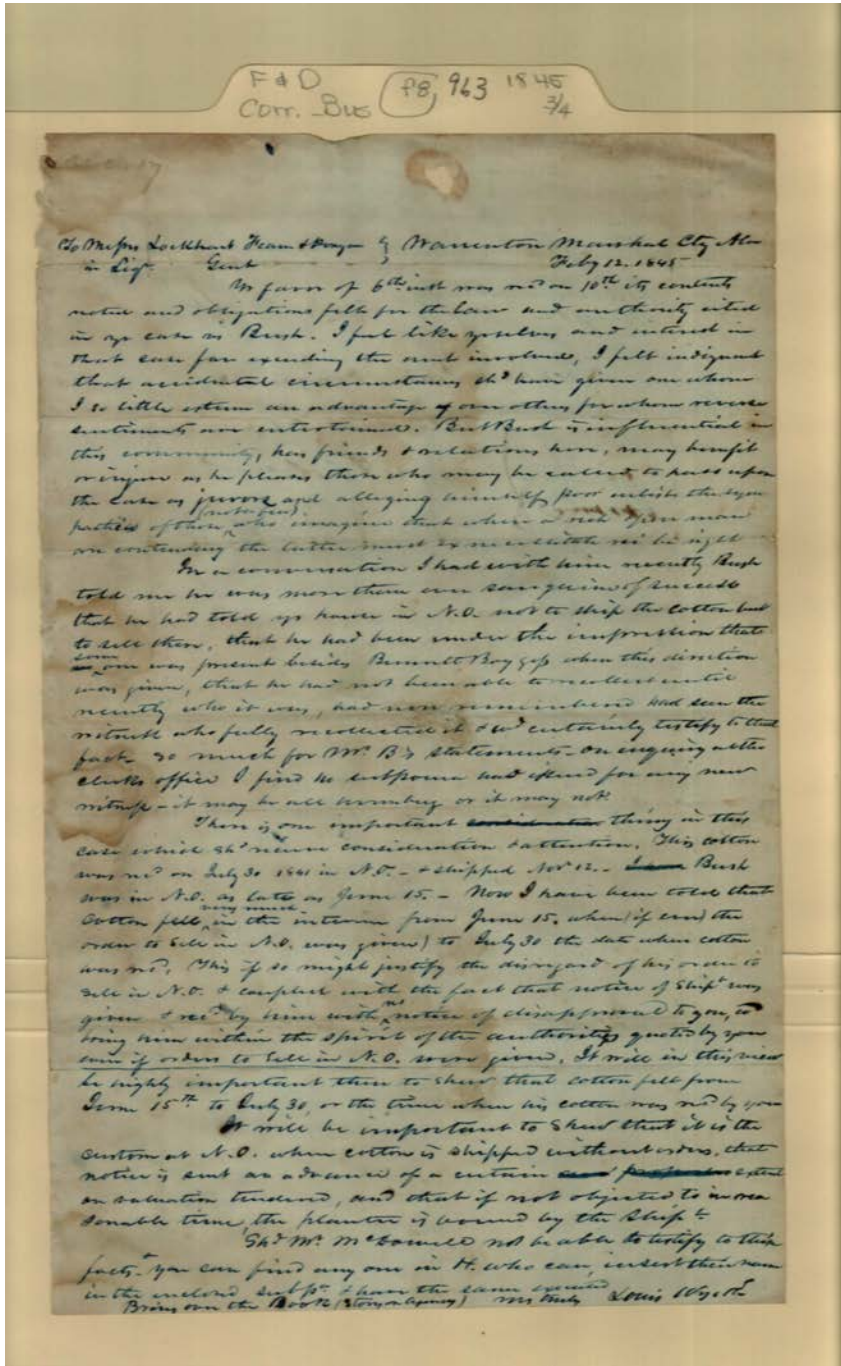 F & D
Corr. Bus
P8, 963 1845
3/4
To Messrs Lockhart Fearn & Donegan } Warrenton Marshal Cty Ala
in Liqn. Gent Feby 12. 1845
Yr favor of 6th inst was recd on 10th its contents
noted and obligations felt for the law and authority cited
in yr case vs Bush. I feel like yrselves and interest in
that case far exceeding the amt involved, I felt indignant
that accidental circumstances shd have given one whom
I so little esteem an advantage over others for whom reverse
sentiments are entertained. But Bush is influential in
this community, has friends & relations here, may benefit
or injure as he pleases those who may be called to pass upon
the case as jurors and alleging himself poor enlists the sym
pathies of those who imagine that when a rich & poor man
are contending the latter must ex necessitate rei be right
In a conversation I had with him recently Bush
told me he was more than ever sanguine of success
that he had told yr house in N.O. not to ship the cotton but
to sell there, that he had been under the impression that
some one was present besides Bennett when this direction
was given, that he had not been able to recollect until
recently who it was, had now remembered had seen the
witness who fully recollected it & wd certainly testify to that
fact. So much for Mr. B's statements. On enquiry at the
clerks office I find no subpoena had issued for any new
witness - it may be all humbug or it may not.
There is one important thing in this
case which shd receive consideration & attention. This cotton
was recd on July 30 1841 in N.O. - & shipped Nov 12. - Bush
was in N.O. as late as June 15. - Now I have been told that
cotton fell very much in the interim from June 15. when (if ever) the
order to sell in N.O. was given) to July 30 the date when cotton
was recd. This if so might justify the disregard of his order to
sell in N.O. & coupled with the fact that notice of Shipt was
given & recd by him with no notice of disapproval to you, to
bring him within the spirit of the authorities quoted by you
even if orders to sell in N.O. were given. It will in this view
be highly important then to shew that cotton fell from
June 15th to July 30, or the time when his cotton was recd by you
It will be important to shew that it is the
custom at N.O. when cotton is shipped without orders, that
notice is sent an advance of a certain extent
on valuation tendered, and that if not objected to in rea
sonable time, the planter is bound by the shipt.
Shd Mr. McDowell not be able to testify to this
facts - you can find any one in H. who can, insert their name
in the enclosed subpa. & have the same executed
Bring over the Book (Story on Agency) yrs truly Louis Wyeth